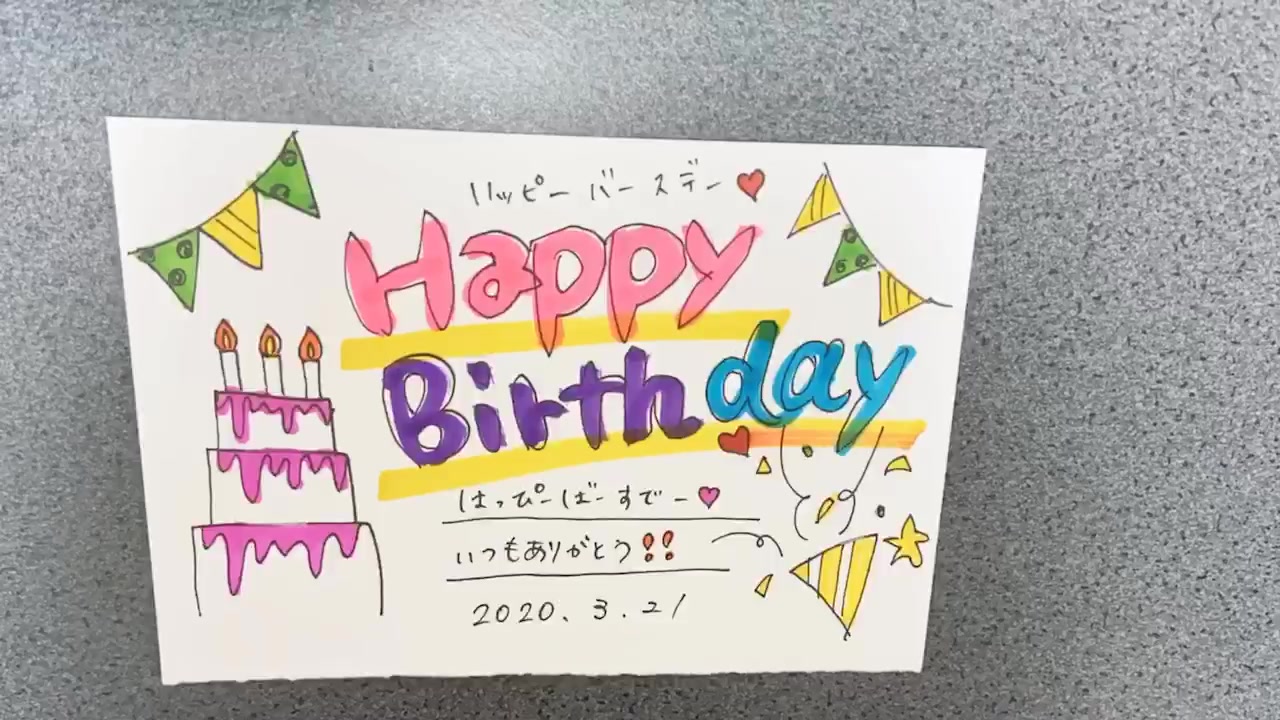 ハッピー バースデー
Happy
Birthday
はっぴーばーすでー
いつもありがとう!!
2020. 3. 21